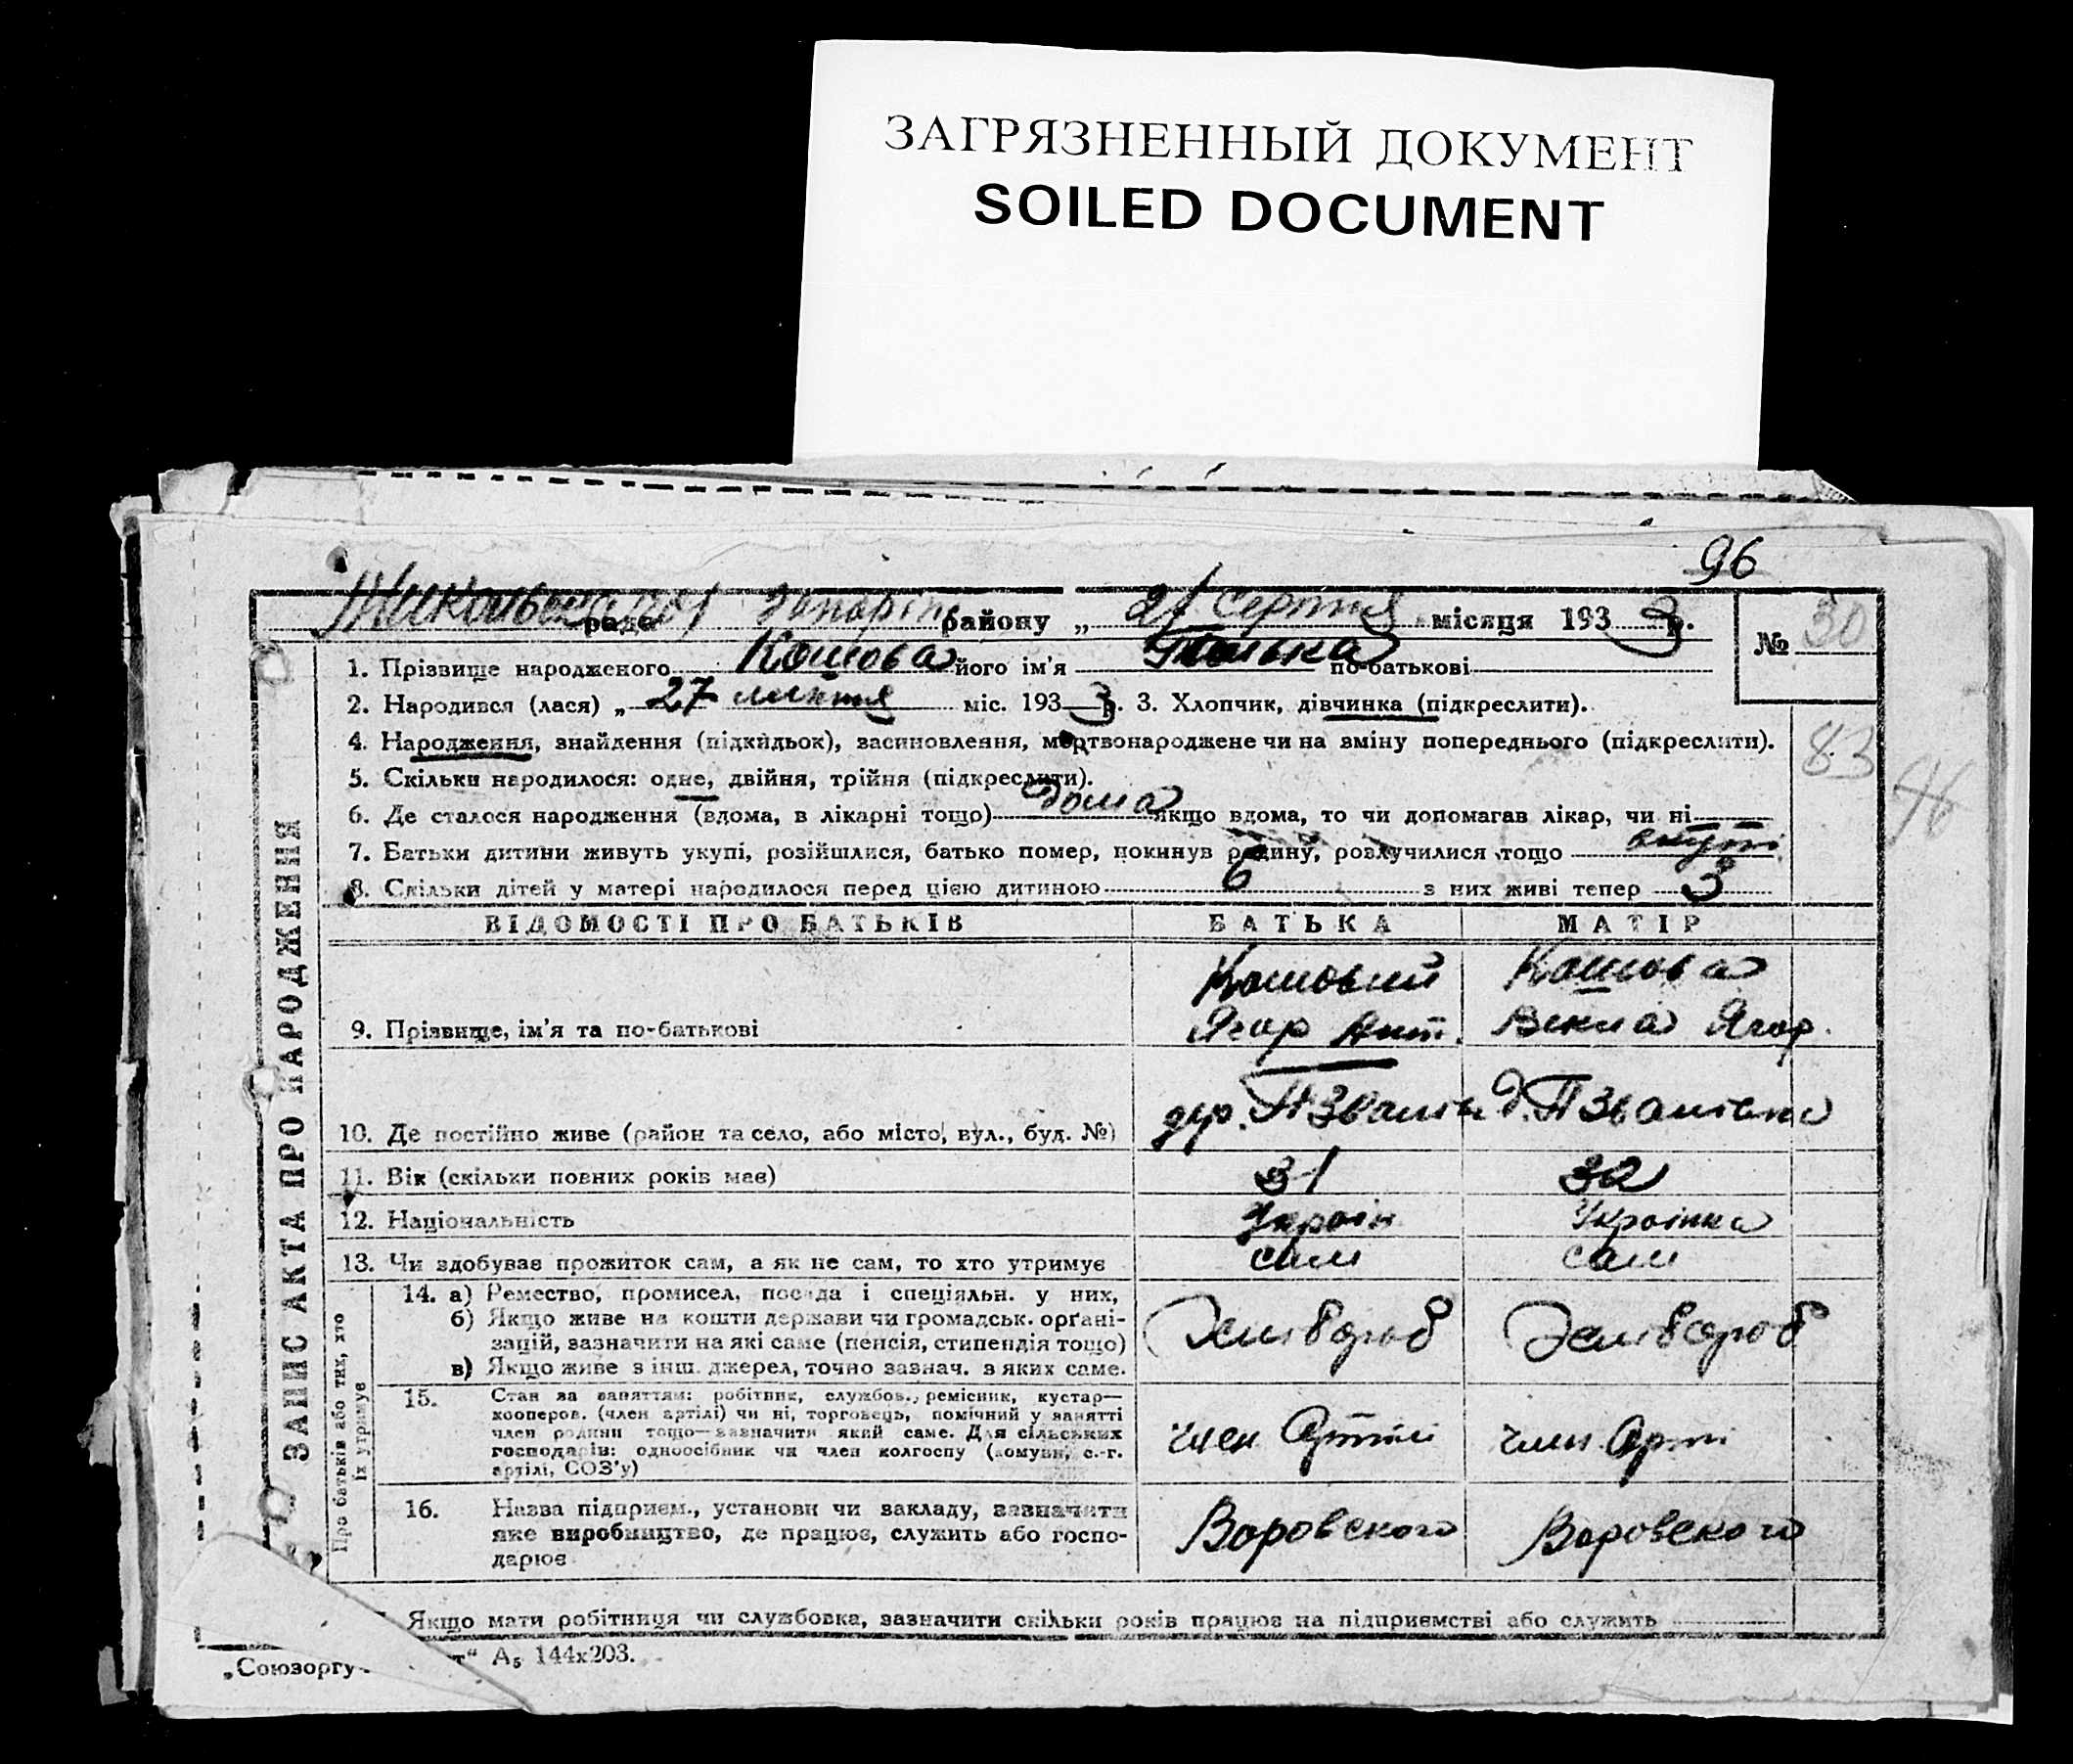 ЗАГРЯЗНЕННЫЙ ДОКУМЕНТ
SOILED DOCUMENT
96
рада району „ 21 Серпня місяця 193 3 р.
№ 30
1. Прізвище народженого Кошова його ім'я по-батькові
2. Народився (лася) „ 27 липня міс. 193 3 р. 3. Хлопчик, дівчинка (підкреслити).
4. Народження, знайдення (підкидьок), засиновлення, мертвонароджене чи на зміну попереднього (підкреслити).
83
96
5. Скільки народилося: одне, двійня, трійня (підкреслити).
6. Де сталося народження (вдома, в лікарні тощо) дома якщо вдома, то чи допомагав лікар, чи ні
7. Батьки дитини живуть укупі, розійшлися, батько помер, покинув родину, розлучилися тощо вкупі
8. Скільки дітей у матері народилося перед цією дитиною 6 з них живі тепер 3
ЗАПИС АКТА ПРО НАРОДЖЕННЯ
ВІДОМОСТІ ПРО БАТЬКІВ БАТЬКА МАТІР
Кошовий Кошова
9. Прізвище, ім'я та по-батькові Ягор Ант. Векла Ягор.
10. Де постійно живе (район та село, або місто, вул., буд. №)
11. Вік (скільки повних років має) 31 32
12. Національність Україн Українка
13. Чи здобуває прожиток сам, а як не сам, то хто утримує сам сам
Про батьків або тих, хто їх утримує
14. а) Ремество, промисел, посада і спеціяльн. у них,
б) Якщо живе на кошти держави чи громадськ. орґані-
зацій, зазначити на які саме (пенсія, стипендія тощо)
в) Якщо живе з інш. джерел, точно зазнач. з яких саме.
15. Стан за заняттям: робітник, службов., ремісник, кустар—
кооперов. (член артілі) чи ні, торговець, помічний у занятті
член родини тощо—зазначити який саме. Для сільських
господарів: одноосібник чи член колгоспу (комуни, с.-г.
артілі, СОЗ'у)
член Артілі член Арті
16. Назва підприєм., установи чи закладу, зазначити
яке виробництво, де працює, служить або госпо-
дарює
Воровского Воровского
Якщо мати робітниця чи службовка, зазначити скільки років працює на підприємстві або служить
„Союзоргу т“ А₅ 144х203.